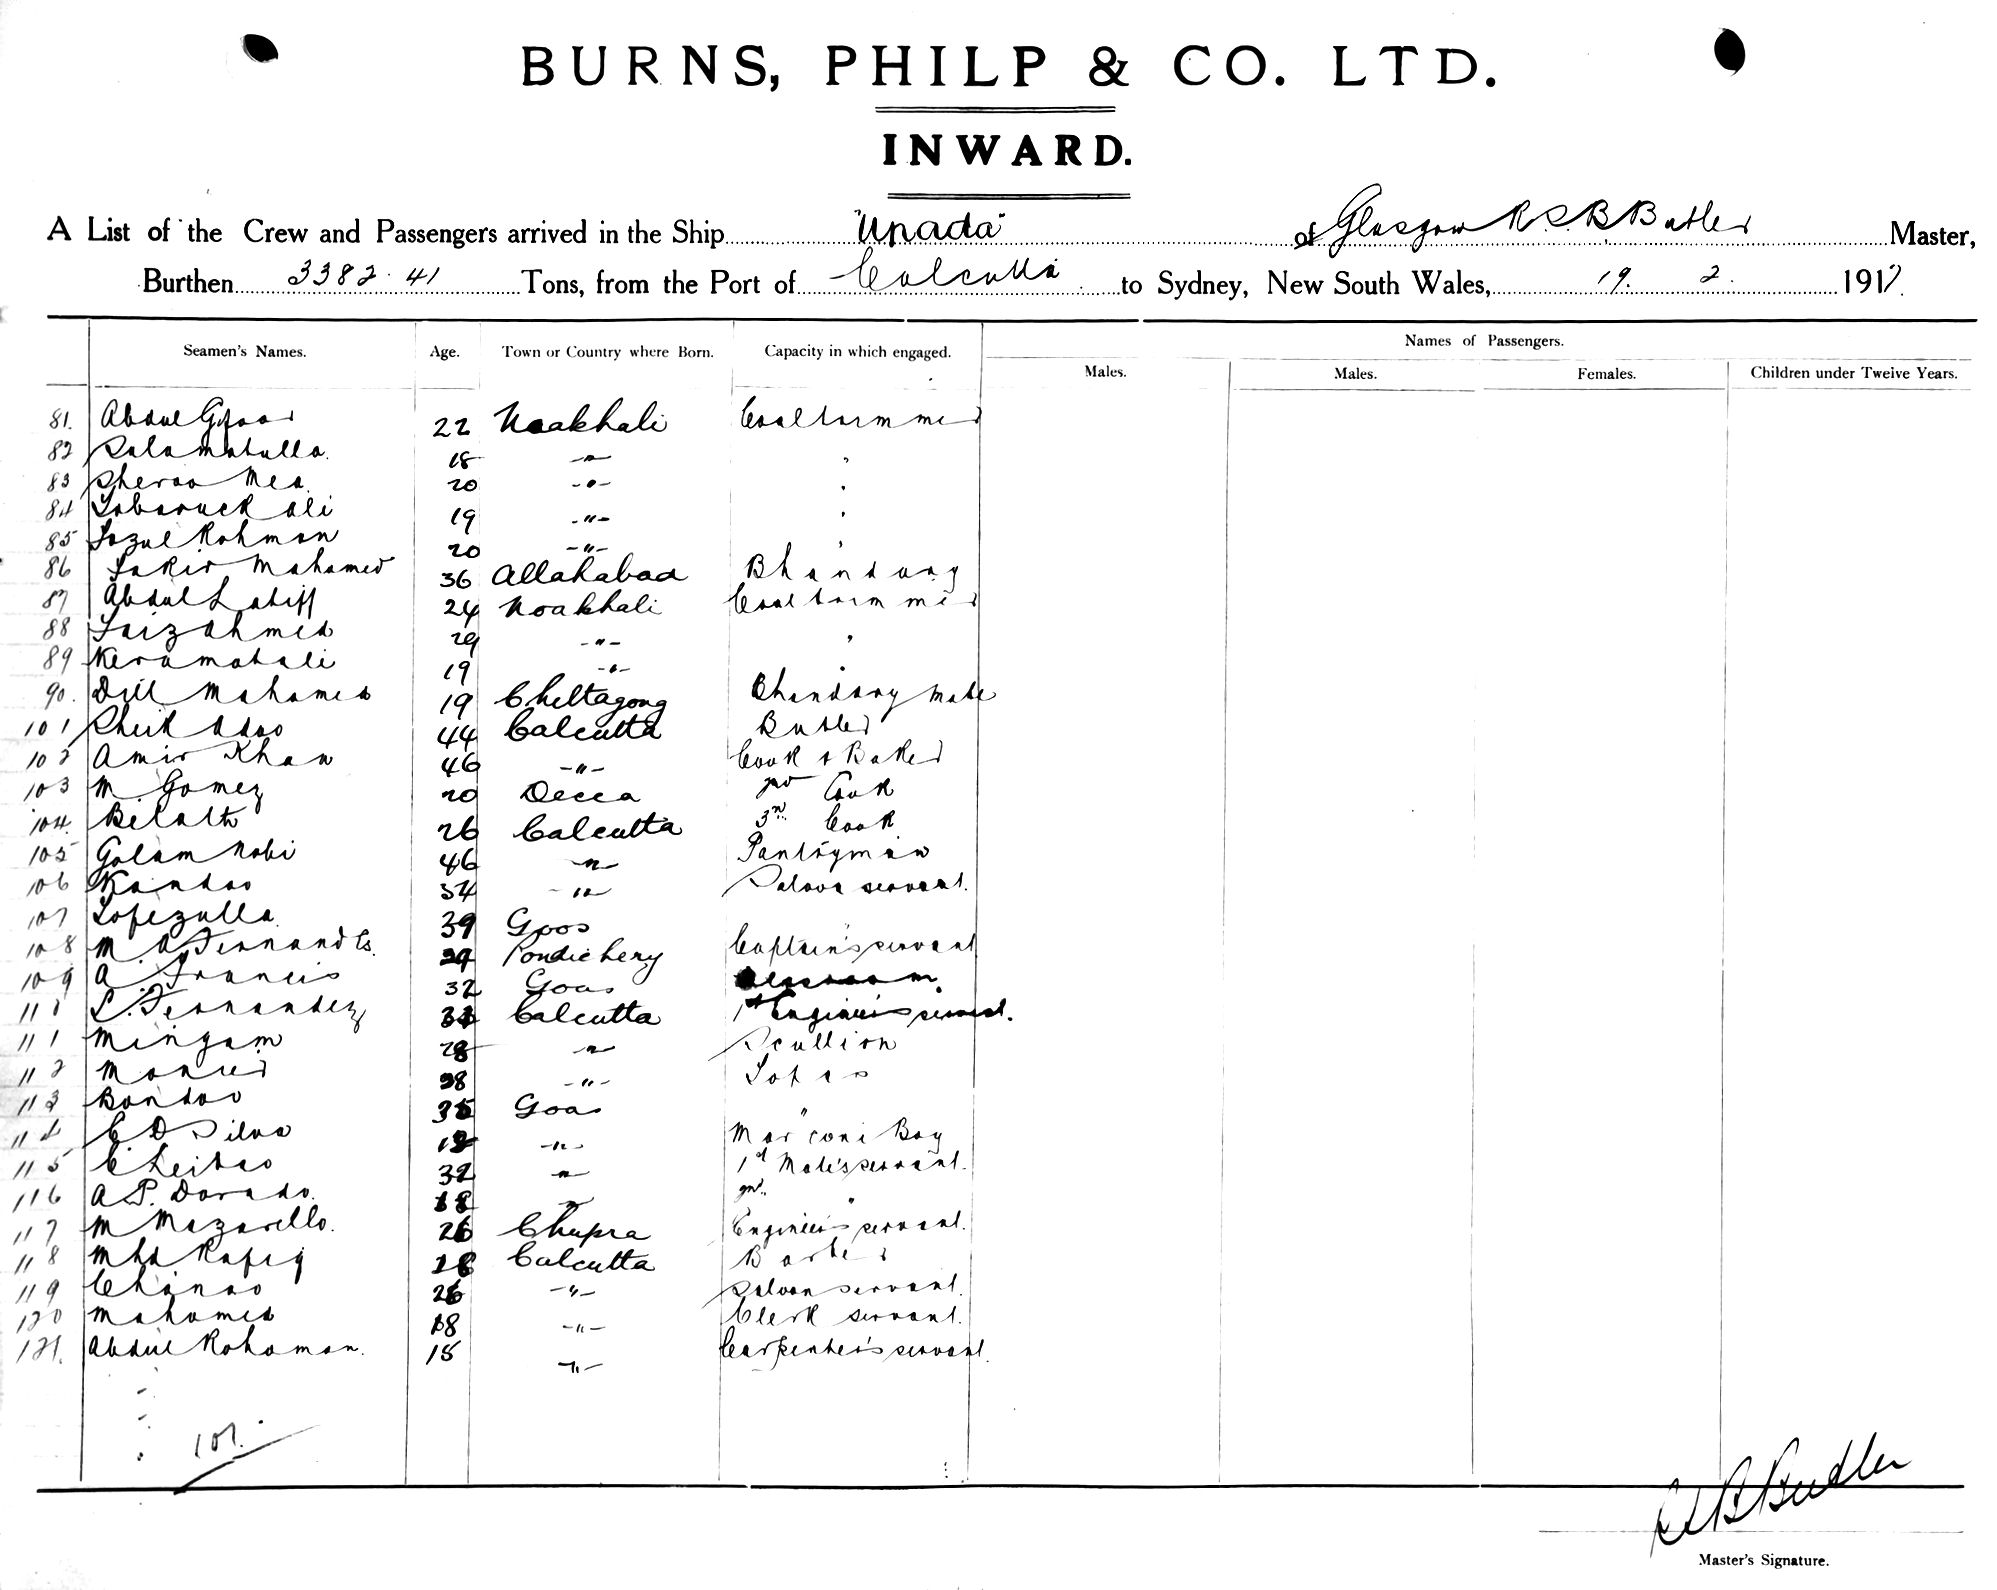 BURNS, PHILP & CO. LTD.
INWARD.
A List of the Crew and Passengers arrived in the Ship "Unada" of Glasgow R S B Butler Master,
Burthen 3382.41 Tons, from the Port of Calcutta to Sydney, New South Wales, 19. 2. 1917.
Seamen's Names. Age. Town or Country where Born. Capacity in which engaged. Names of Passengers.
Males. Males. Females. Children under Twelve Years.
81. Abdul Gfoor 22 Noakhali Coaltrimmer
82 Salamatulla. 18 -"- "
83 Sheroo Mea. 20 -"- "
84 Tobaruck Ali 19 -"- "
85 Fozul Rohman 20 -"- "
86 Fakir Mahamed 36 Allahabad Bhandary
87 Abdul Latiff 24 Noakhali Coaltrimmer
88 Faiz Ahmed 29 -"- "
89 Keramatali 19 -"- "
90. Dill Mahamed 19 Chittagong Bhandary Mate
101 Sheik Adoo 44 Calcutta Butler
102 Amir Khan 46 -"- Cook & Baker
103 M. Gomez 20 Decca 2nd Cook
104. Belath 26 Calcutta 3rd Cook
105 Golam Nobi 46 -"- Pantryman
106 Kandoo 34 -"- Saloon servant.
107 Lofezulla 39 Goos
108 M. A. Fernandes. Pondichery Captain's servant
109 A. Francis 32 Goas
110 L. Fernandez Calcutta 1st Engineer's servant.
111 Mingam 28 -"- Scullion
112 Monier 38 -"- Topas
113 Bondoo 35 Goas "
114 C. D Silva -"- Marconi Boy
115 C Leitao 32 -"- 1st Mate's servant.
116 A P. Dorado. 18 -"- 2nd. "
117 M Mazarello. 26 Chupra Engineer's servant.
118 Mhd Rafiq Calcutta Barber
119 Chinoo 26 -"- Saloon servant.
120 Mahamed 18 -"- Clerk servant.
121. Abdul Rohaman. 18 -"- Carpenter's servant.
107.
R S B Butler
Master's Signature.